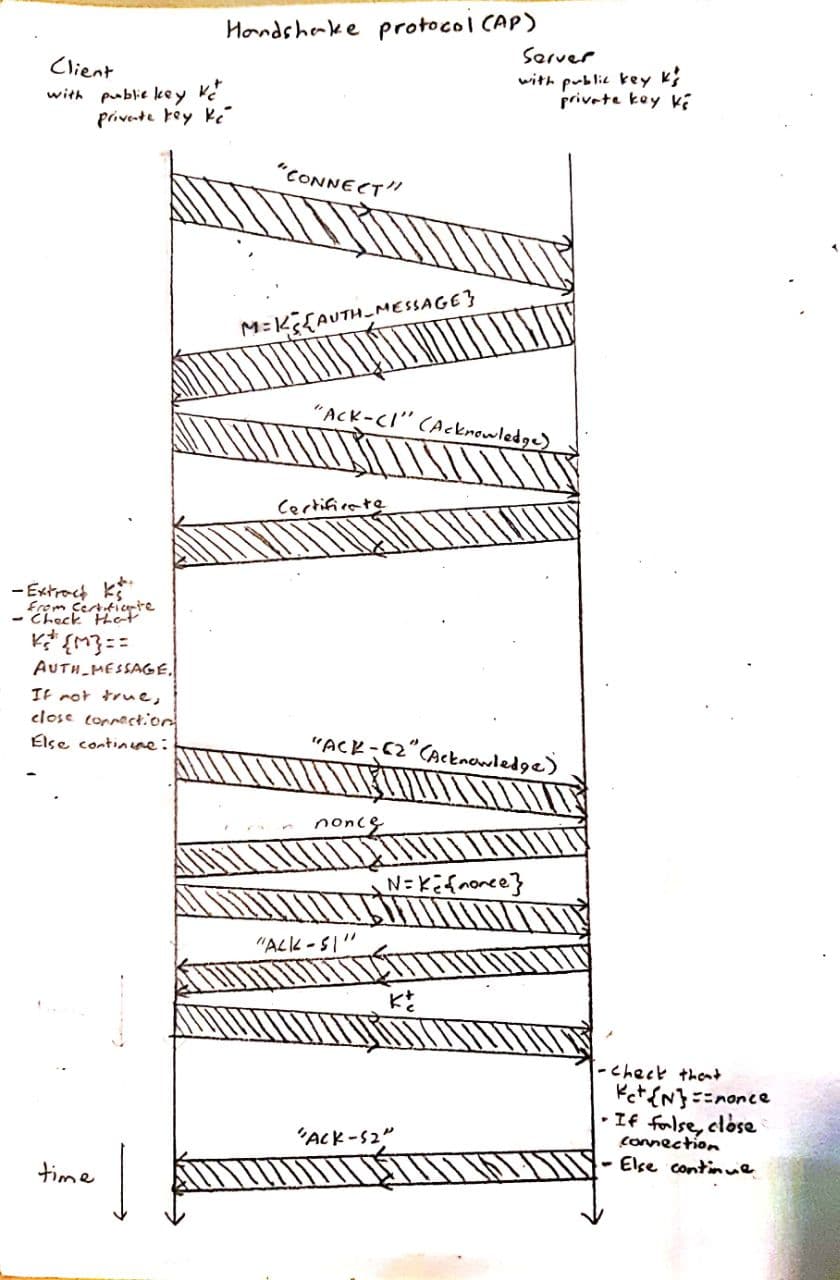 Handshake protocol (AP)
Client
with public key Kc+
private key Kc-
Server
with public key Ks+
private key Ks-
"CONNECT"
M=Ks-{AUTH_MESSAGE}
"ACK-C1" (Acknowledge)
Certificate
- Extract Ks+
from Certificate
- Check that
Ks+{M}==
AUTH_MESSAGE.
If not true,
close connection
Else continue:
-
"ACK-C2" (Acknowledge)
nonce
N=Kc-{nonce}
"ACK-S1"
Kc+
- Check that
Kc+{N}==nonce
- If false, close
connection
- Else continue
"ACK-S2"
time